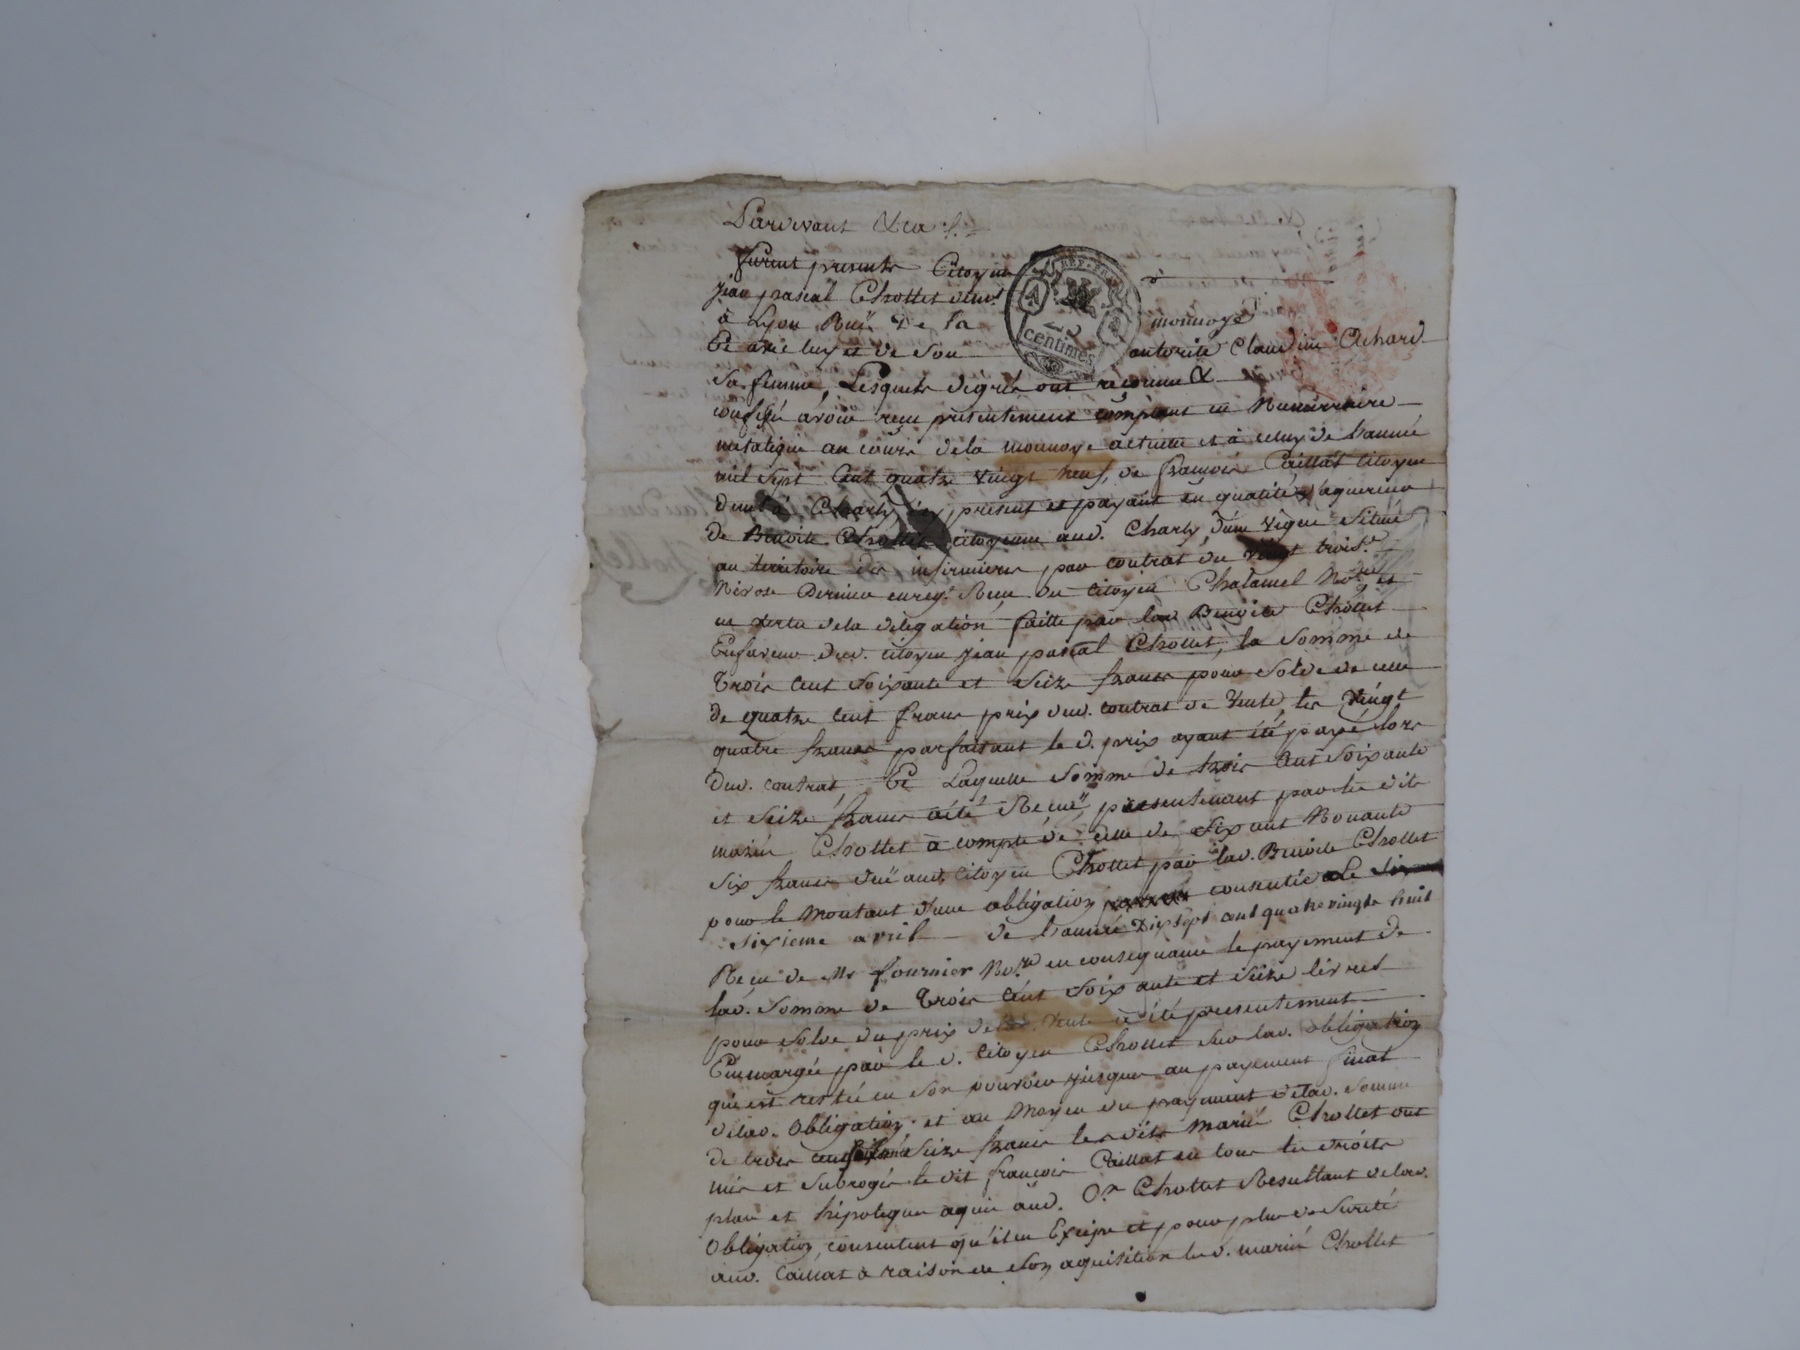 Pardevant &ca
furent presents Citoyen
jean pascal Chollet demt
à Lyon Ruë De la monnoye
Et avec luy et de Son autorité Claudine Achard
Sa femme, Lesquels degrés ont reconnu &
confessé avoir reçu presentement comptant en Numerraire
metalique au cours dela monnoye actuelle et à celuy de L'année
mil Sept Cent quatre vingt neuf, de francois Caillat Citoyen
demt à Charly présent et payant en qualité d'aquereur
de Benoite Chollet citoyenne aud. Charly, d'une vigne Située
au territoire des infirmieres par contrat du vingt trois.e
Nivose Dernier enreg.t Recu du Citoyen Chalamel No.re et
en vertu dela delegation faitte par lad. Benoite Chollet
Enfaveur dud. citoyen jean pascal Chollet, la Somme de
Trois Cent Soixante et Seize francs pour Solde de celle
de quatre Cent francs prix dud. contrat de Vente, les Vingt
quatre francs parfaisant le d. prix ayant été payé lors
dud. contrat Et Laquelle Somme de trois Cent Soixante
et Seize francs a été Recuë presentement par les dits
mariés Chollet à compte de celle de Six cent Nonante
Six francs duë aud. Citoyen Chollet par lad. Benoite Chollet
pour le Montant d'une obligation consentie Le
Sixieme avril de l'année Dixsept cent quatrevingts huit
Reçu de Me fournier No.re en consequance le payement de
lad. Somme de Trois Cent Soixante et Seize livres
pour Solde du prix de lad. Vente a été presentement
Emmargée par le d. Citoyen Chollet Sur lad. obligation
qui est restée en Son pouvoir jusques au payement final
delad. Obligation. et au Moyen du payement delad. Somme
de trois cent Seize francs les dits Mariés Chollet ont
mis et Subrogés le dit francois Caillat en tous les droits
place et hipoteques aquis aud. Chollet Resultant delad.
Obligation, consentent qu'il en Excipe et pour plus de Sureté
aud. Caillat à raison de Son aquisition les d. mariés Chollet
REP. FRA.
25
centimes